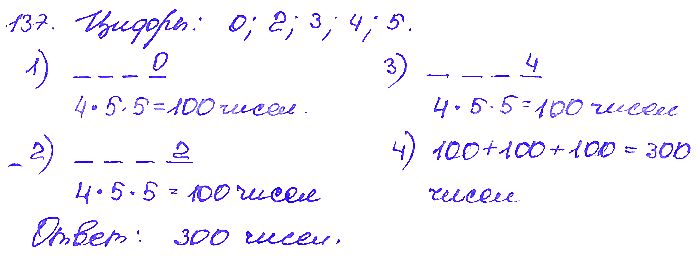 137. Цифры: 0; 2; 3; 4; 5.
1) _ _ _ 0
4·5·5=100 чисел.
2) _ _ _ 2
4·5·5=100 чисел
3) _ _ _ 4
4·5·5=100 чисел
4) 100+100+100=300
чисел
Ответ: 300 чисел.